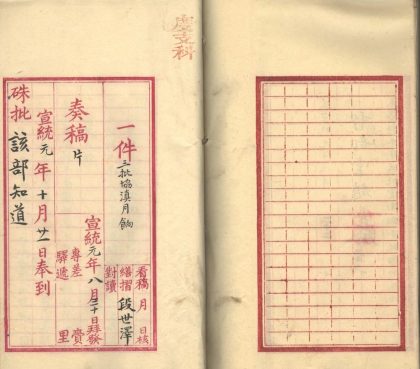 度支科
一件三批協滇月餉
奏稿片
宣統元年八月二十日拜發
專差
驛遞
賫
里
看稿 月 日核
繕摺 段世澤
對讀
硃批 該部知道
宣統元年十月廿一日奉到